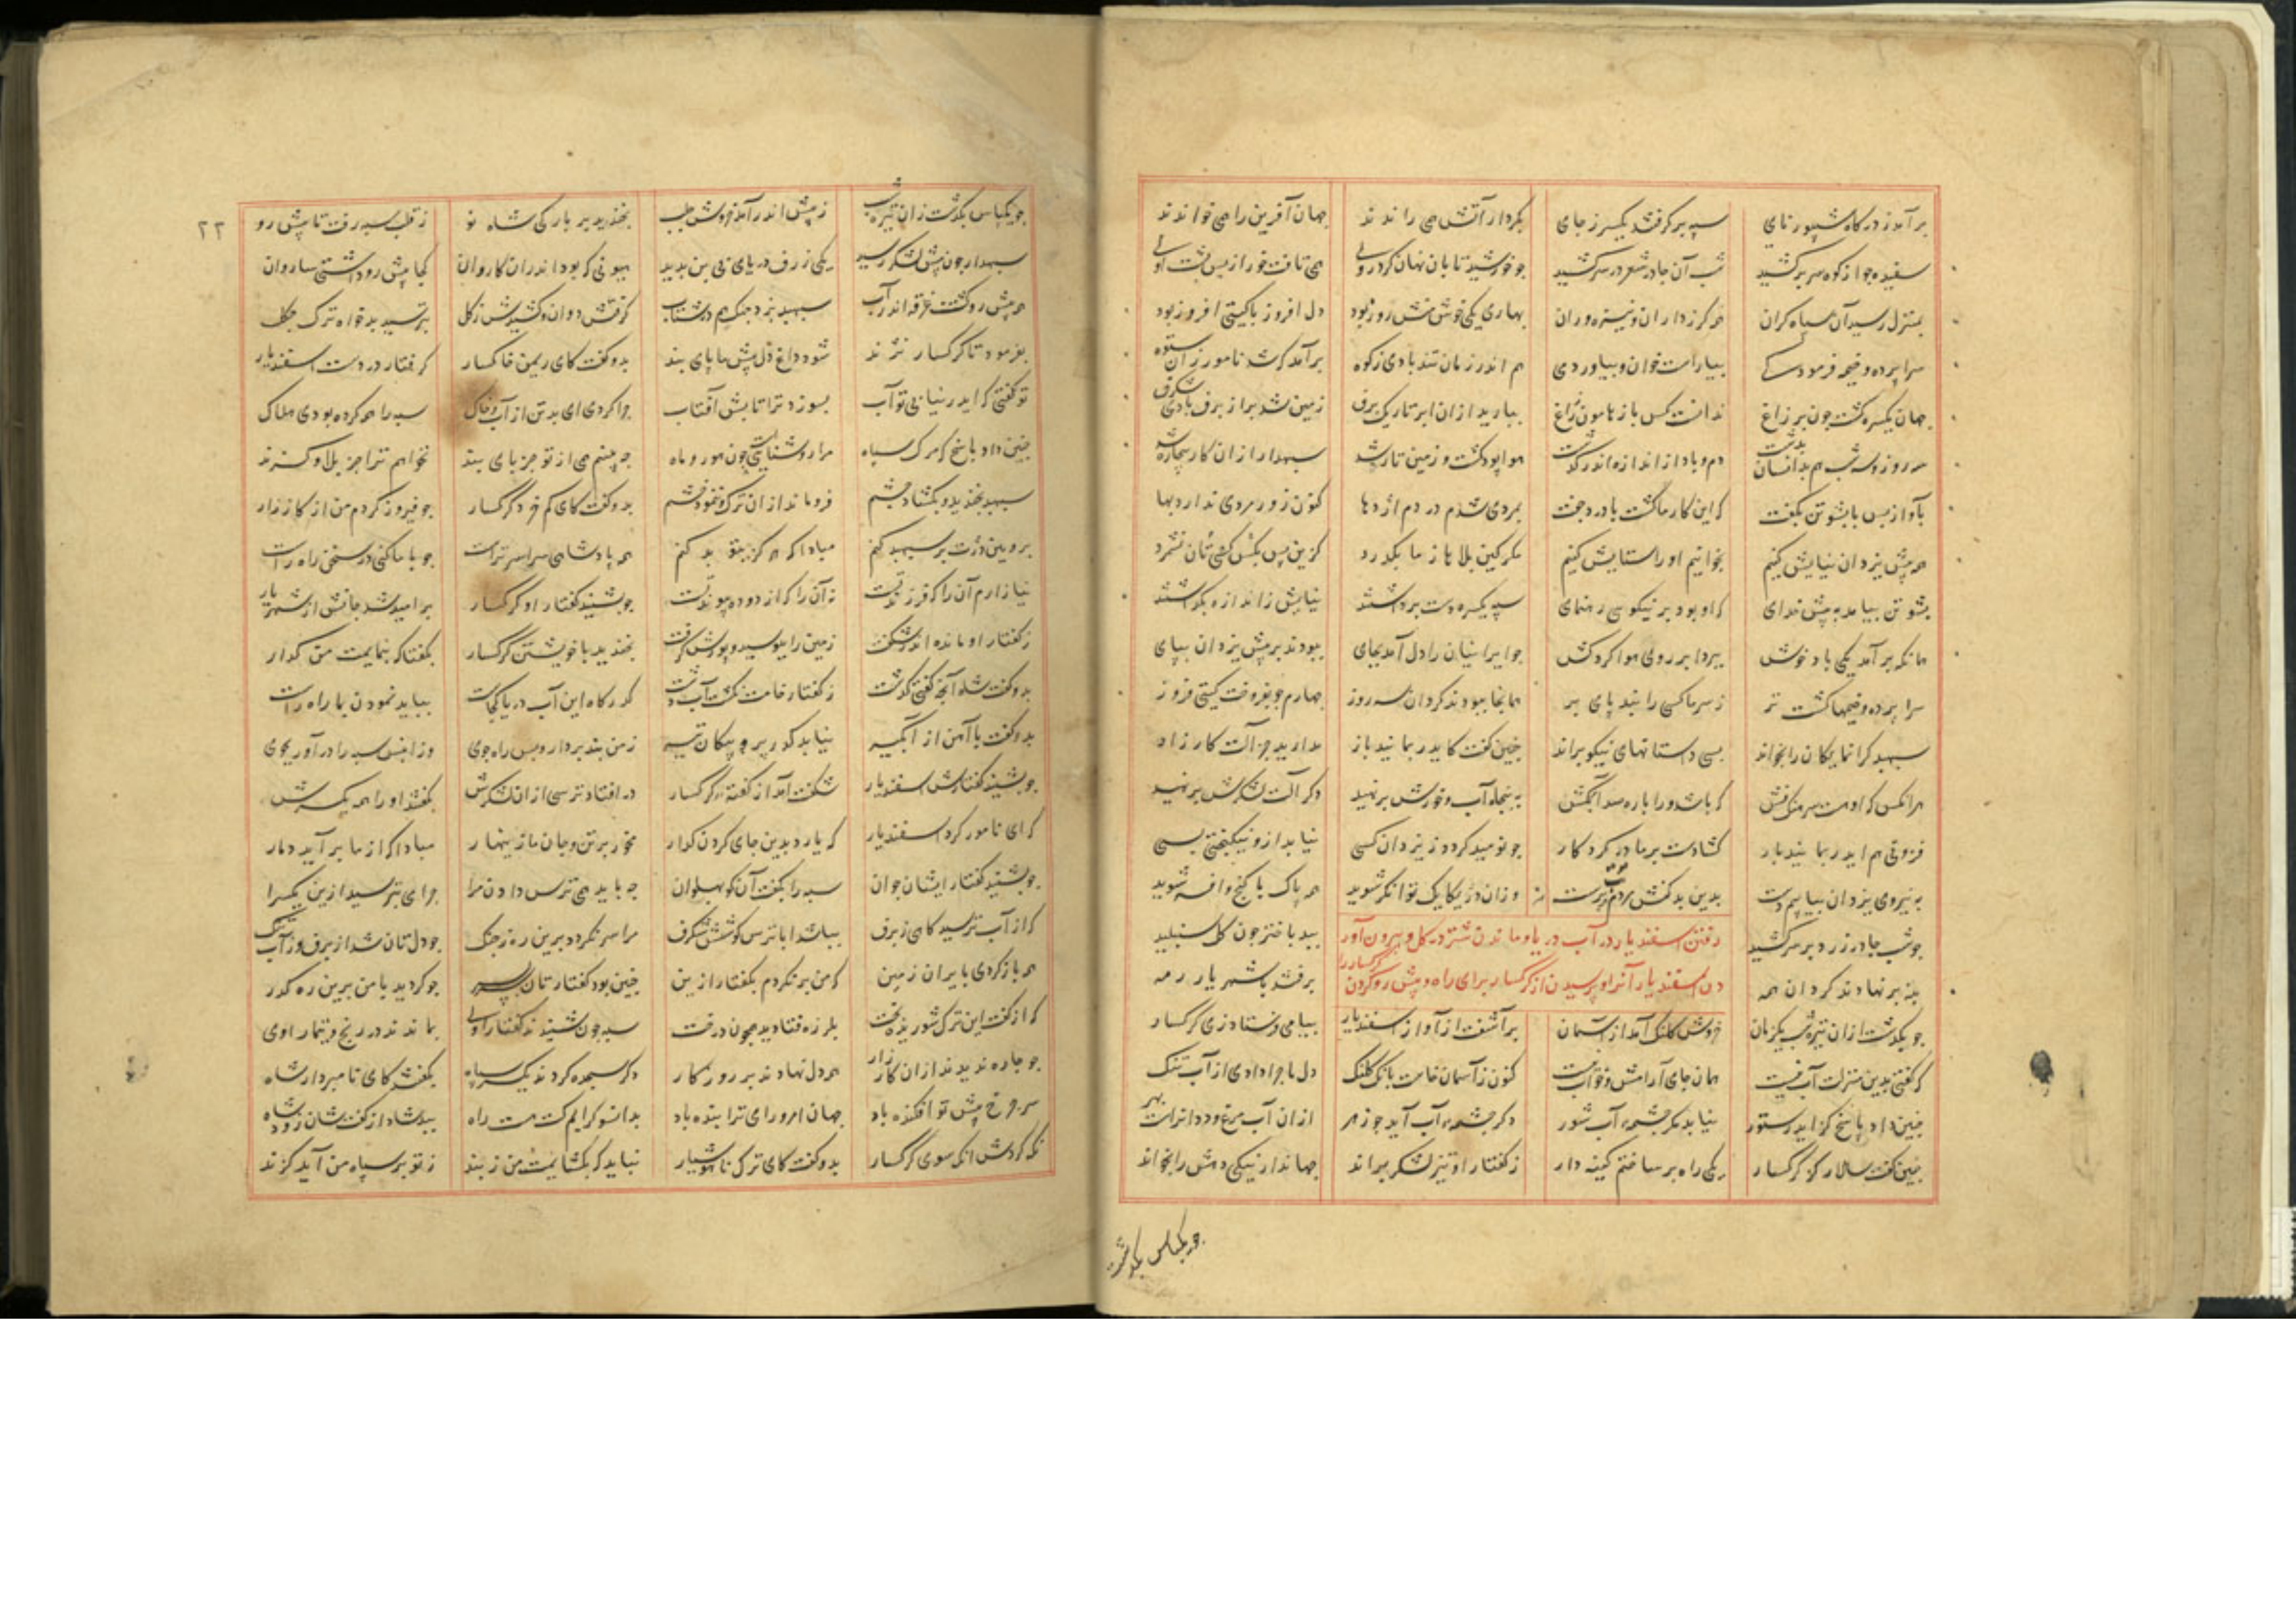 برآمد ز درگاه شیپور نای سپه برگرفتند یکسر ز جای بکردار آتش همی راندند جهان آفرین را همی خواندند
سفیده جو از کوه سر برکشید شب آن جادر شعر در سر کشید جو خورشید تابان نهان کرد روی همی تافت خور از پس پشت اوی
بمنزل رسید آن سپاه کران همه کرزداران و نیزه وران بهاری یکی خوش منش روز بود دل افروز یا کیتی افروز بود
سرابرده و خیمه فرمود کی بیاراست خوان و بیاورد می هم اندر زمان تند بادی ز کوه برآمد که شد نامور زان ستوه
جهان یکسره کشت جون بر زاغ ندانست کس باز هامون ز راغ ببارید از ان ابر تاریک برف زمین شد براز برف بادی شکرف
سه روز و سه شب هم بدانسان بدشت دم و باد از اندازه اندر کذشت هوا پود کشت و زمین تار شد سپهدار ازان کار بیچاره شد
بآواز پس با پشوتن بکفت که این کار ما کشت با درد جفت بمردی شدم در دم اژدها کنون زور مردی ندارد بها
همه پیش یزدان نیایش کنیم بخوانیم او را ستایش کنیم مکر کین بلاها ز ما بکذرد کزین پس بکس کس مان نشمرد
پشوتن بیامد به پیش خدای که او بود بر نیکویی رهنمای سپه یکسره دست برداشتند نیایش ز اندازه بکذاشتند
همانکه برآمد یکی باد خوش ببرد ابر روی هوا کرد کش جو ایرانیان را دل آمد بجای ببودند بر پیش یزدان بپای
سرابرده و خیمها کشت تر ز سرما کسی را نبد پای بر همانجا ببودند کردان سه روز جهارم جو بفروخت کیتی فروز
سپهبد کرانمایکان را بخواند بسی داستانهای نیکو براند جنین کفت کایدر بمانید باز مدارید جز آلت کارزار
هرانکس که اوست سرهنک فش که باشد ورا باره صد آبکش به پنجاه آب و خورش بر نهید دکر آلت لشکرش بر نهید
فزونی هم ایدر بمانید بار کشادست بر ما در کردکار جو نومید کردد ز یزدان کسی نیابد ازو نیکبختی بسی
به نیروی یزدان بیابیم دست بدین بدکنش مردم بت پرست وزان دز یکایک توانکر شوید همه پاک با کنج و افسر شوید
جو شب جادر زرد بر سر کشید ببد باختر جون کل شنبلید
بنه برنهادند کردان همه برفتند با شهریار رمه
رفتن اسفندیار در آب دریا و ماندن شتر در کل و بیرون آور
دن اسفندیار آنرا و پرسیدن از کرکسار برای راه و پیش رو کردن کرکسار را
جو بکذشت ازان تیره شب یکزمان خروش کلنک آمد از آسمان برآشفت از آواز اسفندیار پیامی فرستاد زی کرکسار
که کفتی بدین منزلت آب نیست همان جای آرامش و خواب نیست کنون ز آسمان خاست بانک کلنک دل ما جرا دادی از آب تنک
جنین داد پاسخ کز ایدر ستور نیابد مکر جشمه آب شور دکر جشمه آب آید جو زهر ازان آب مرغ و دد انراست بهر
جنین کفت سالار کز کرکسار یکی راهبر ساختم کینه دار ز کفتار او تیز لشکر براند جهاندار نیکی دهش را بخواند
جو یکپاس بکذشت
۲۲
جو یکپاس بکذشت زان تیره شب ز پیش اندر آمد خروش جلب بخندید بر بارکی شاه نو ز قلب سپه رفت تا پیش رو
سپهدار جون پیش لشکر رسید یکی ژرف دریای بی بن بدید هیونی که بود اندران کاروان کجا پیش رو داشتی ساروان
همه پیش رو کشت غرقه اندر آب سپهبد بزد جنک هم در شتاب کرفتش دو ران و کشیدش ز کل بترسید بدخواه ترک جکل
بفرمود تا کرکسار نژند شود داغ دل پیش ما پای بند بدو کفت کای ریمن خاکسار کرفتار در دست اسفندیار
تو کفتی که ایدر نیابی تو آب بسوزد ترا تابش آفتاب جرا کردی ای بدتن از آب و خاک سپه را همه کرده بودی هلاک
جنین داد پاسخ که مرک سپاه مرا روشناییست جون هور و ماه جه بینم همی از تو جز پای بند نخواهم ترا جز بلا و کزند
سپهبد بخندید و بکشاد جشم فرو ماند ازان ترک و ننمود خشم بدو کفت کای کم خرد کرکسار جو فیروز کردم من از کارزار
برویین دزت بر سپهبد کنم مبادا که هرکز بتو بد کنم همه پادشاهی سراسر تراست جو با ما کنی در سخن راه راست
نیازارم آنرا که فرزند تست نه آن را که از دوده پیوند تست جو بشنید کفتار او کرکسار بر امید شد جانش از شهریار
ز کفتار او مانده اندر شکفت زمین را ببوسید و پوزش کرفت بخندید با خویشتن کرکسار بکفتا که بنمایمت من کذار
بدو کفت شاه آنجه کفتی کذشت ز کفتار خامت نکشت آب دشت کذرکاه این آب دریا کجاست بباید نمودن بما راه راست
بدو کفت با آهن از آبکیر نیابد کذر پر و پیکان تیر ز من بند بردار و پس راه جوی وز انپس سپه را درآور بجوی
جو بشنید کفتارش اسفندیار شکفت آمد از کفته کرکسار در افتاد ترسی ازان لشکرش بکفتند او را همه یکسرش
که ای نامور کرد اسفندیار که یارد بدین جای کردن کذار مخور بر تن و جان ما زینهار مبادا که از ما برآید دمار
جو بشنید کفتار ایشان جوان سپه را بکفت آن کو پهلوان جه باید همی ترس دادن مرا جرا می بترسید ازین یکسرا
که از آب ترسید کاهی ز برف بباشد ابا ترس کوشش شکرف مرا سر نکردد برین ره ز جنک جو دلتان شد از برف وز آب تنک
همه بازکردی بایران زمین که من برنکردم بکفتار ازین جنین بود کفتارتان جو کردید با من برین ره کذر
که از کفت این ترک شوریده بخت بلرزه فتادید همجون درخت سپه جون شنیدند کفتار اوی بماندند در رنج و تیمار اوی
جو جاره ندیدند ازان کار زار همه دل نهادند بر روزکار دکر سجده کردند یکسر سپاه بکفتند کای نامبردار شاه
سر جرخ پیش تو افکنده باد جهان امر و رای ترا بنده باد بدانسو کراییم کت هست راه ببد شاد از کفتشان زود شاه
نکه کردش انکه سوی کرکسار بدو کفت کای ترک ناهوشیار نباید که بکشایمت من ز بند ز تو بر سپاه من آید کزند